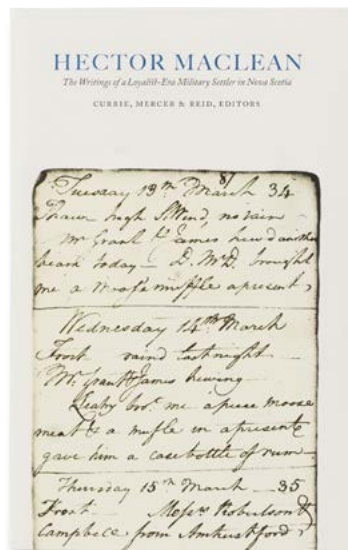 HECTOR MACLEAN
The Writings of a Loyalist-Era Military Settler in Nova Scotia
CURRIE, MERCER & REID, EDITORS
87
Tuesday 13th March 34
Thaw high Wind, no rain
Mr Grant & James hew'd another
beam today — D. McD. brought
me a Moose muffle a present,
Wednesday 14th March
Frost raind last night
Mr. Grant & James hewing
Leahy bro.t me a piece moose
meat & a mufle in a present &
gave him a case bottle of rum —
Thursday 15th March — 35
Frost. Messrs Robertson &
Campbell from Amherst ford,